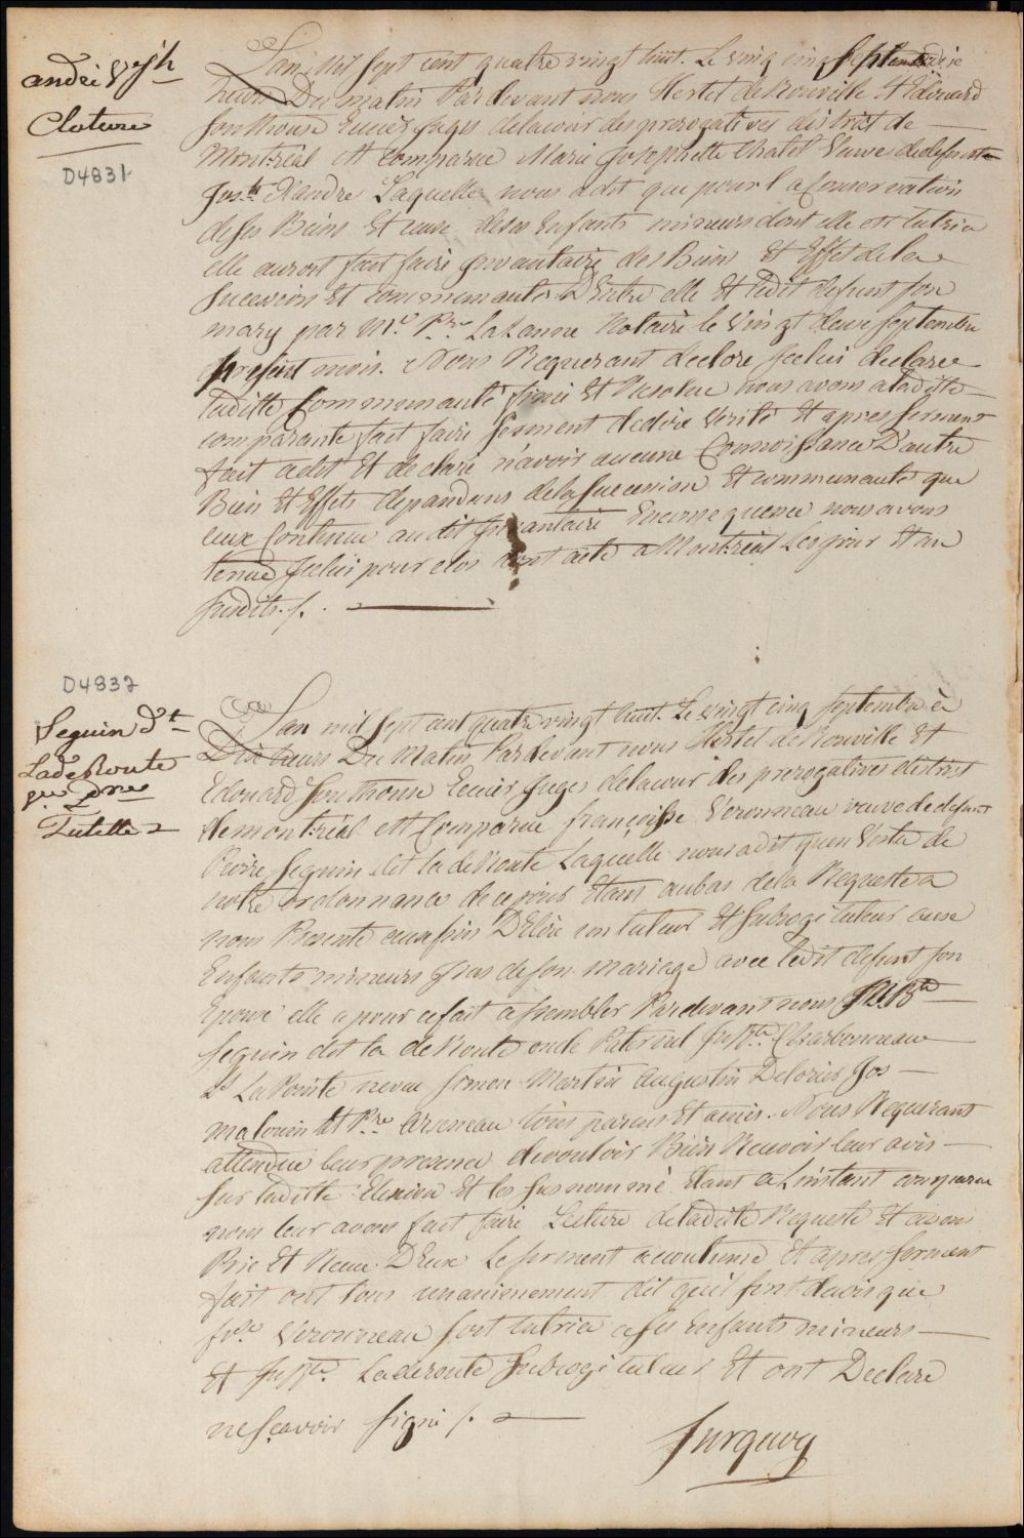 andré Vve Jh
Cloture
D4831
L'an mil sept cent quatre vingt huit. Le ving cinq septembre
heure Du matin Pardevant nous Hertel de Rouville Et Edouard
Southouse Ecuier Juges de la cour des prerogatives district de
Montréal Est Comparue Marie Josephette Chalel Veuve de defunt
Jos.te D'andre Laquelle nous a dit que pour la Conservation
de ses Biens Et ceux de ses Enfants mineurs dont elle est tutrice
elle auroit fait faire Invantaire des Biens Et Effet de la
Sucession Et communauté D'Entre elle Et ledit defunt son
mary par M.e P.re LaLanne Notaire le Vingt deux septembre
present mois. Nous Requerant declore Jcelui declare
laditte Communauté finie Et Resolue nous avons a ladite
comparante fait faire serment de dire Verité Et apres serment
fait a dit Et declaré n'avoir aucune Connoissance D'autre
Bien Et Effets depandans de la sucession Et communauté que
ceux Contenue audit Invantaire Enconsequence nous avons
tenue Jcelui pour clos dont acte a Montréal Les jour Et an
susdits./.
D4832
Seguin d.t
Laderoute
Tutelle
L'an mil sept cent quatre vingt huit. Le vingt cinq septembre à
Dix heures Du Matin Pardevant nous Hertel de Rouville Et
Edouard Southouse Ecuier Juges de la cour des prerogatives district
de montréal est Comparue françoisse Veronneau veuve de defunt
Pierre Seguin dit la deRoute Laquelle nous a dit qu'en Vertu de
notre ordonnance de ce jour Etant au bas de la Requeste a
nous Presenté aux fins D'Elire un tuteur Et subrogé tuteur aux
Enfants mineurs Jssus de son mariage avec ledit defunt son
Epoux elle a pour ce fait assembler Pardevant nous J. B.te
Seguin dit la deRoute oncle Paternel J. B.te Charbonneau
d.t La Pointe neveu Simon Martin Augustin Delorier Jos
malouin Et P.re Arseneau tous parens Et amis. Nous Requerant
attendu leur presence de vouloir Bien Recevoir leur avis
sur laditte Elexion Et les susnommé Etant a L'instant comparue
nous leur avons fait faire Lecture de ladite Requeste Et avons
Pris Et Recue D'Eux Le serment acoutumé Et apres serment
fait ont tous unanimement dit qu'il sont d'avis que
f.se Veronneau soit tutrice a ses Enfants mineurs
Et J. B.te Laderoute Subrogé tuteur Et ont Declare
ne sçavoir signé /.
Jurquoy